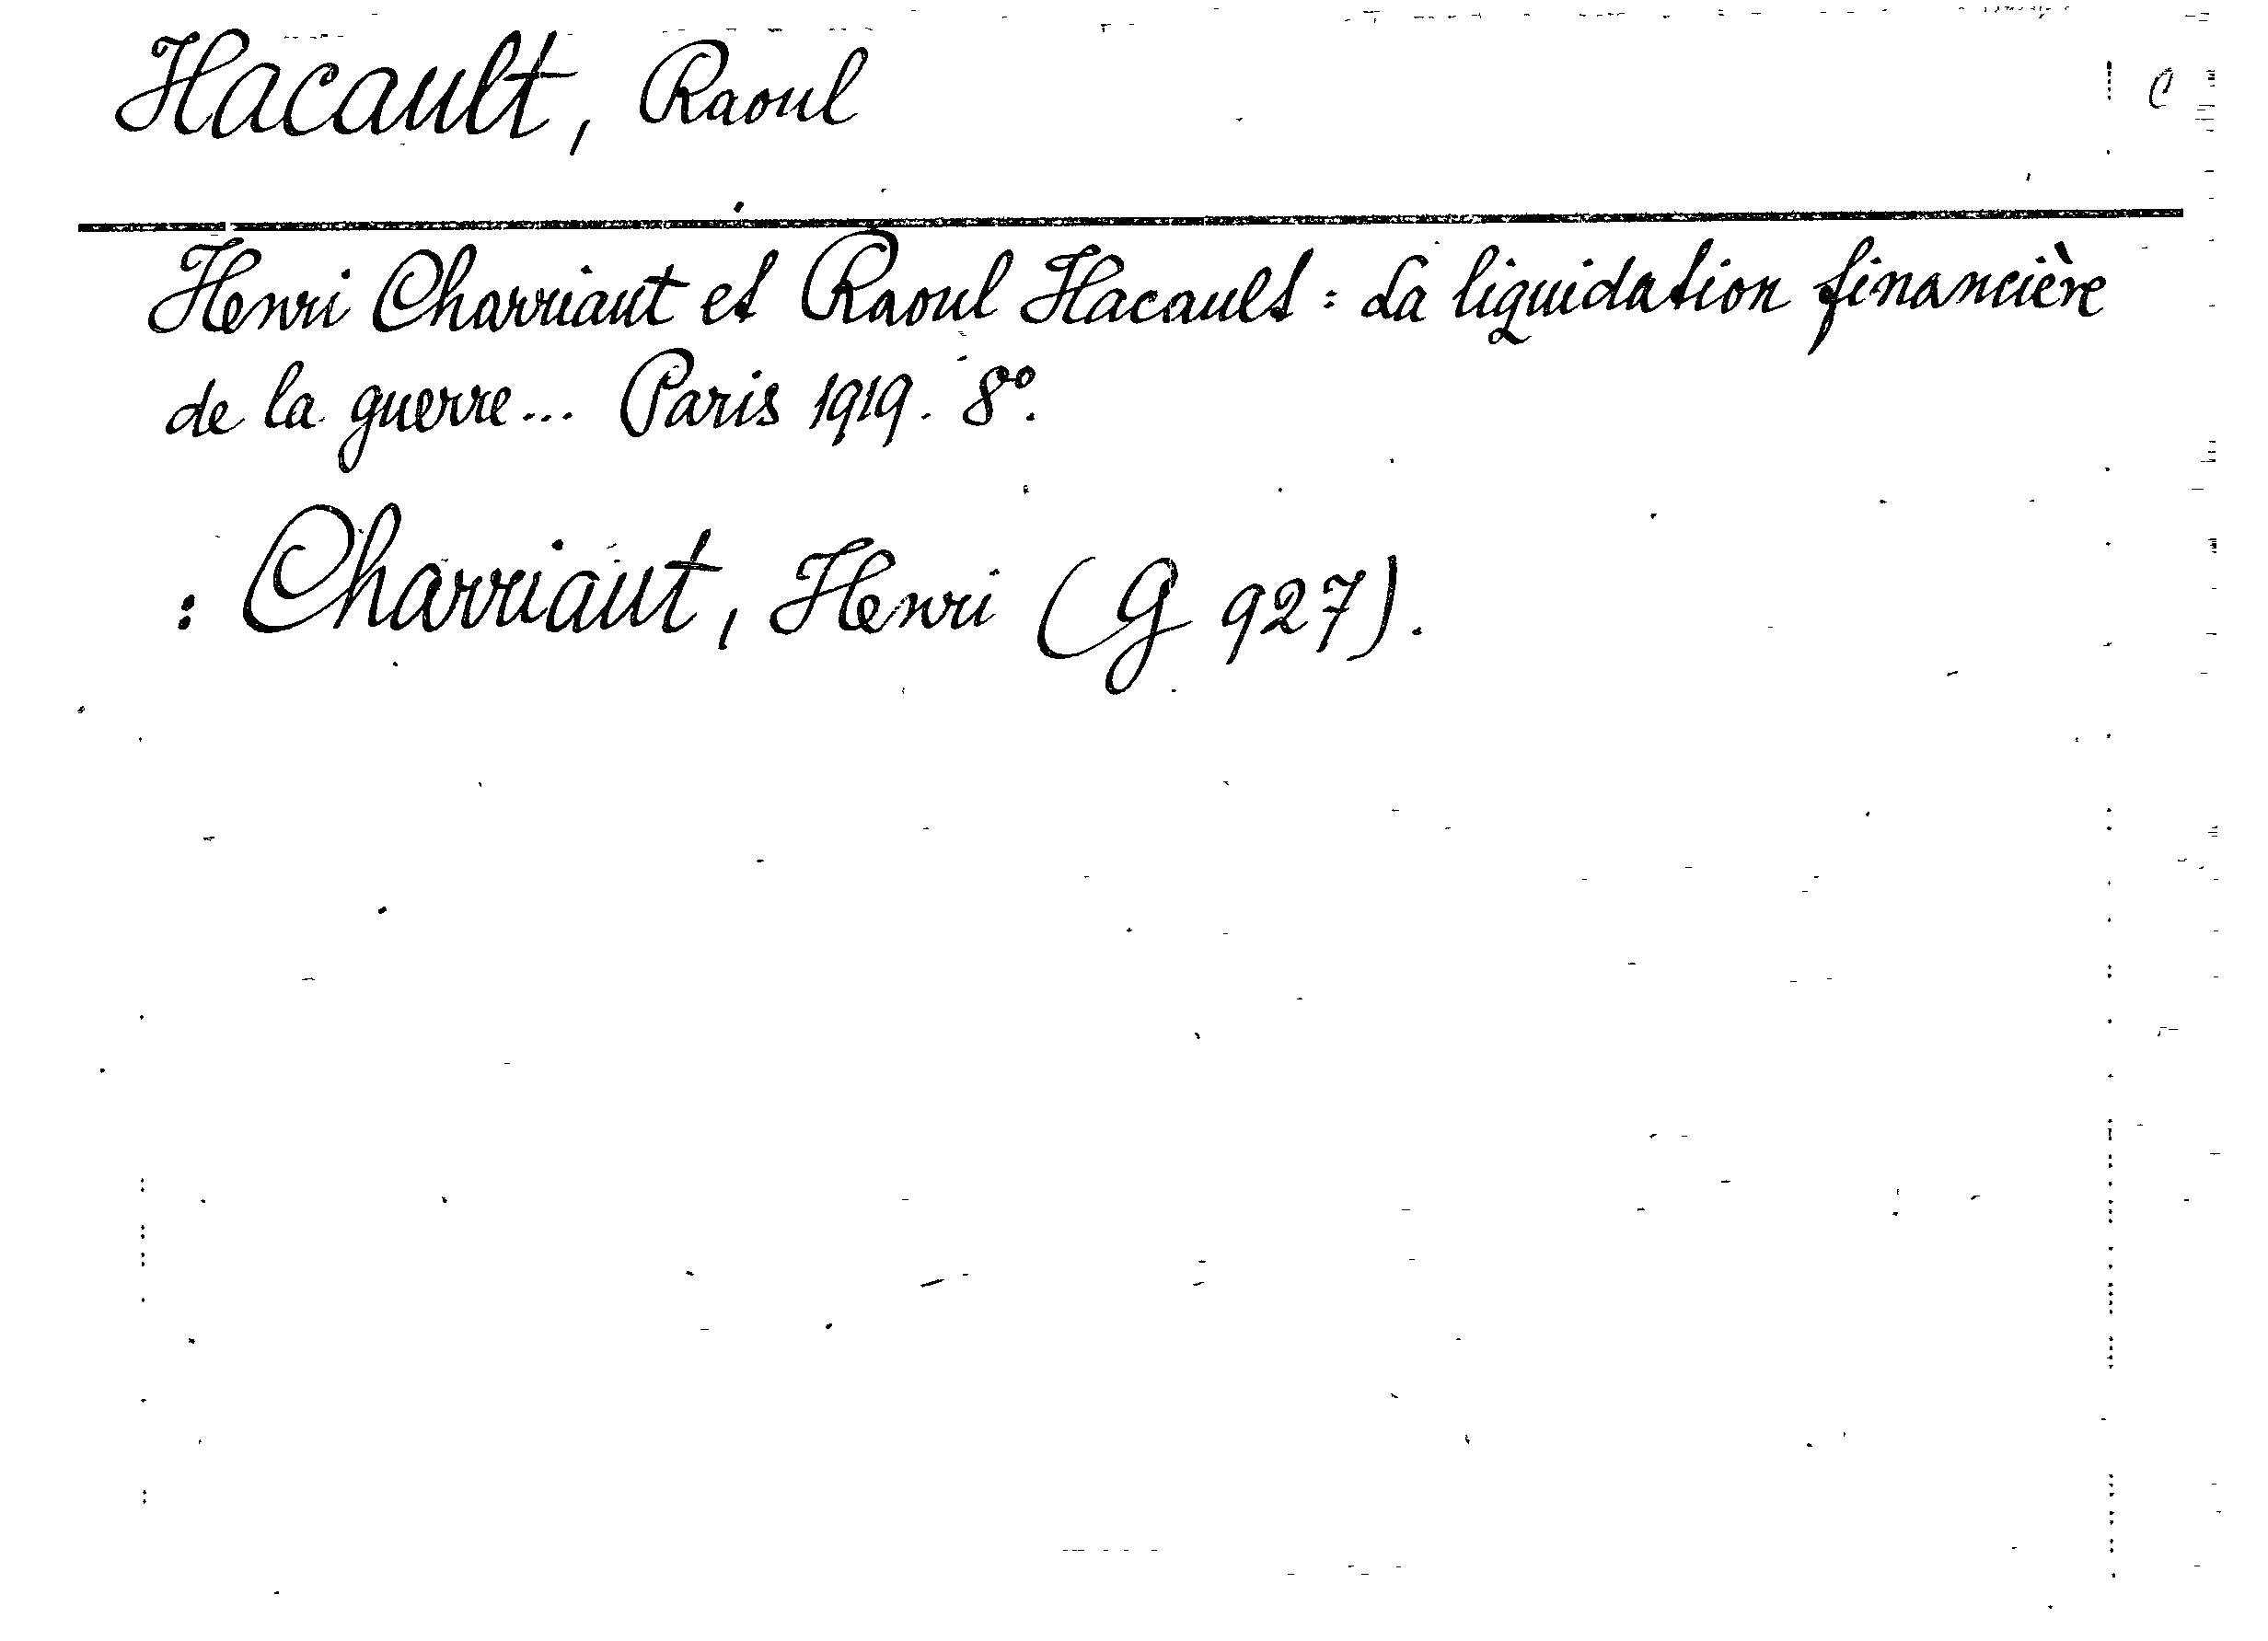 Hacault, Raoul C
Henri Charriaut et Raoul Hacault : La liquidation financière
de la guerre... Paris 1919. 8°.
: Charriaut, Henri (G 927).